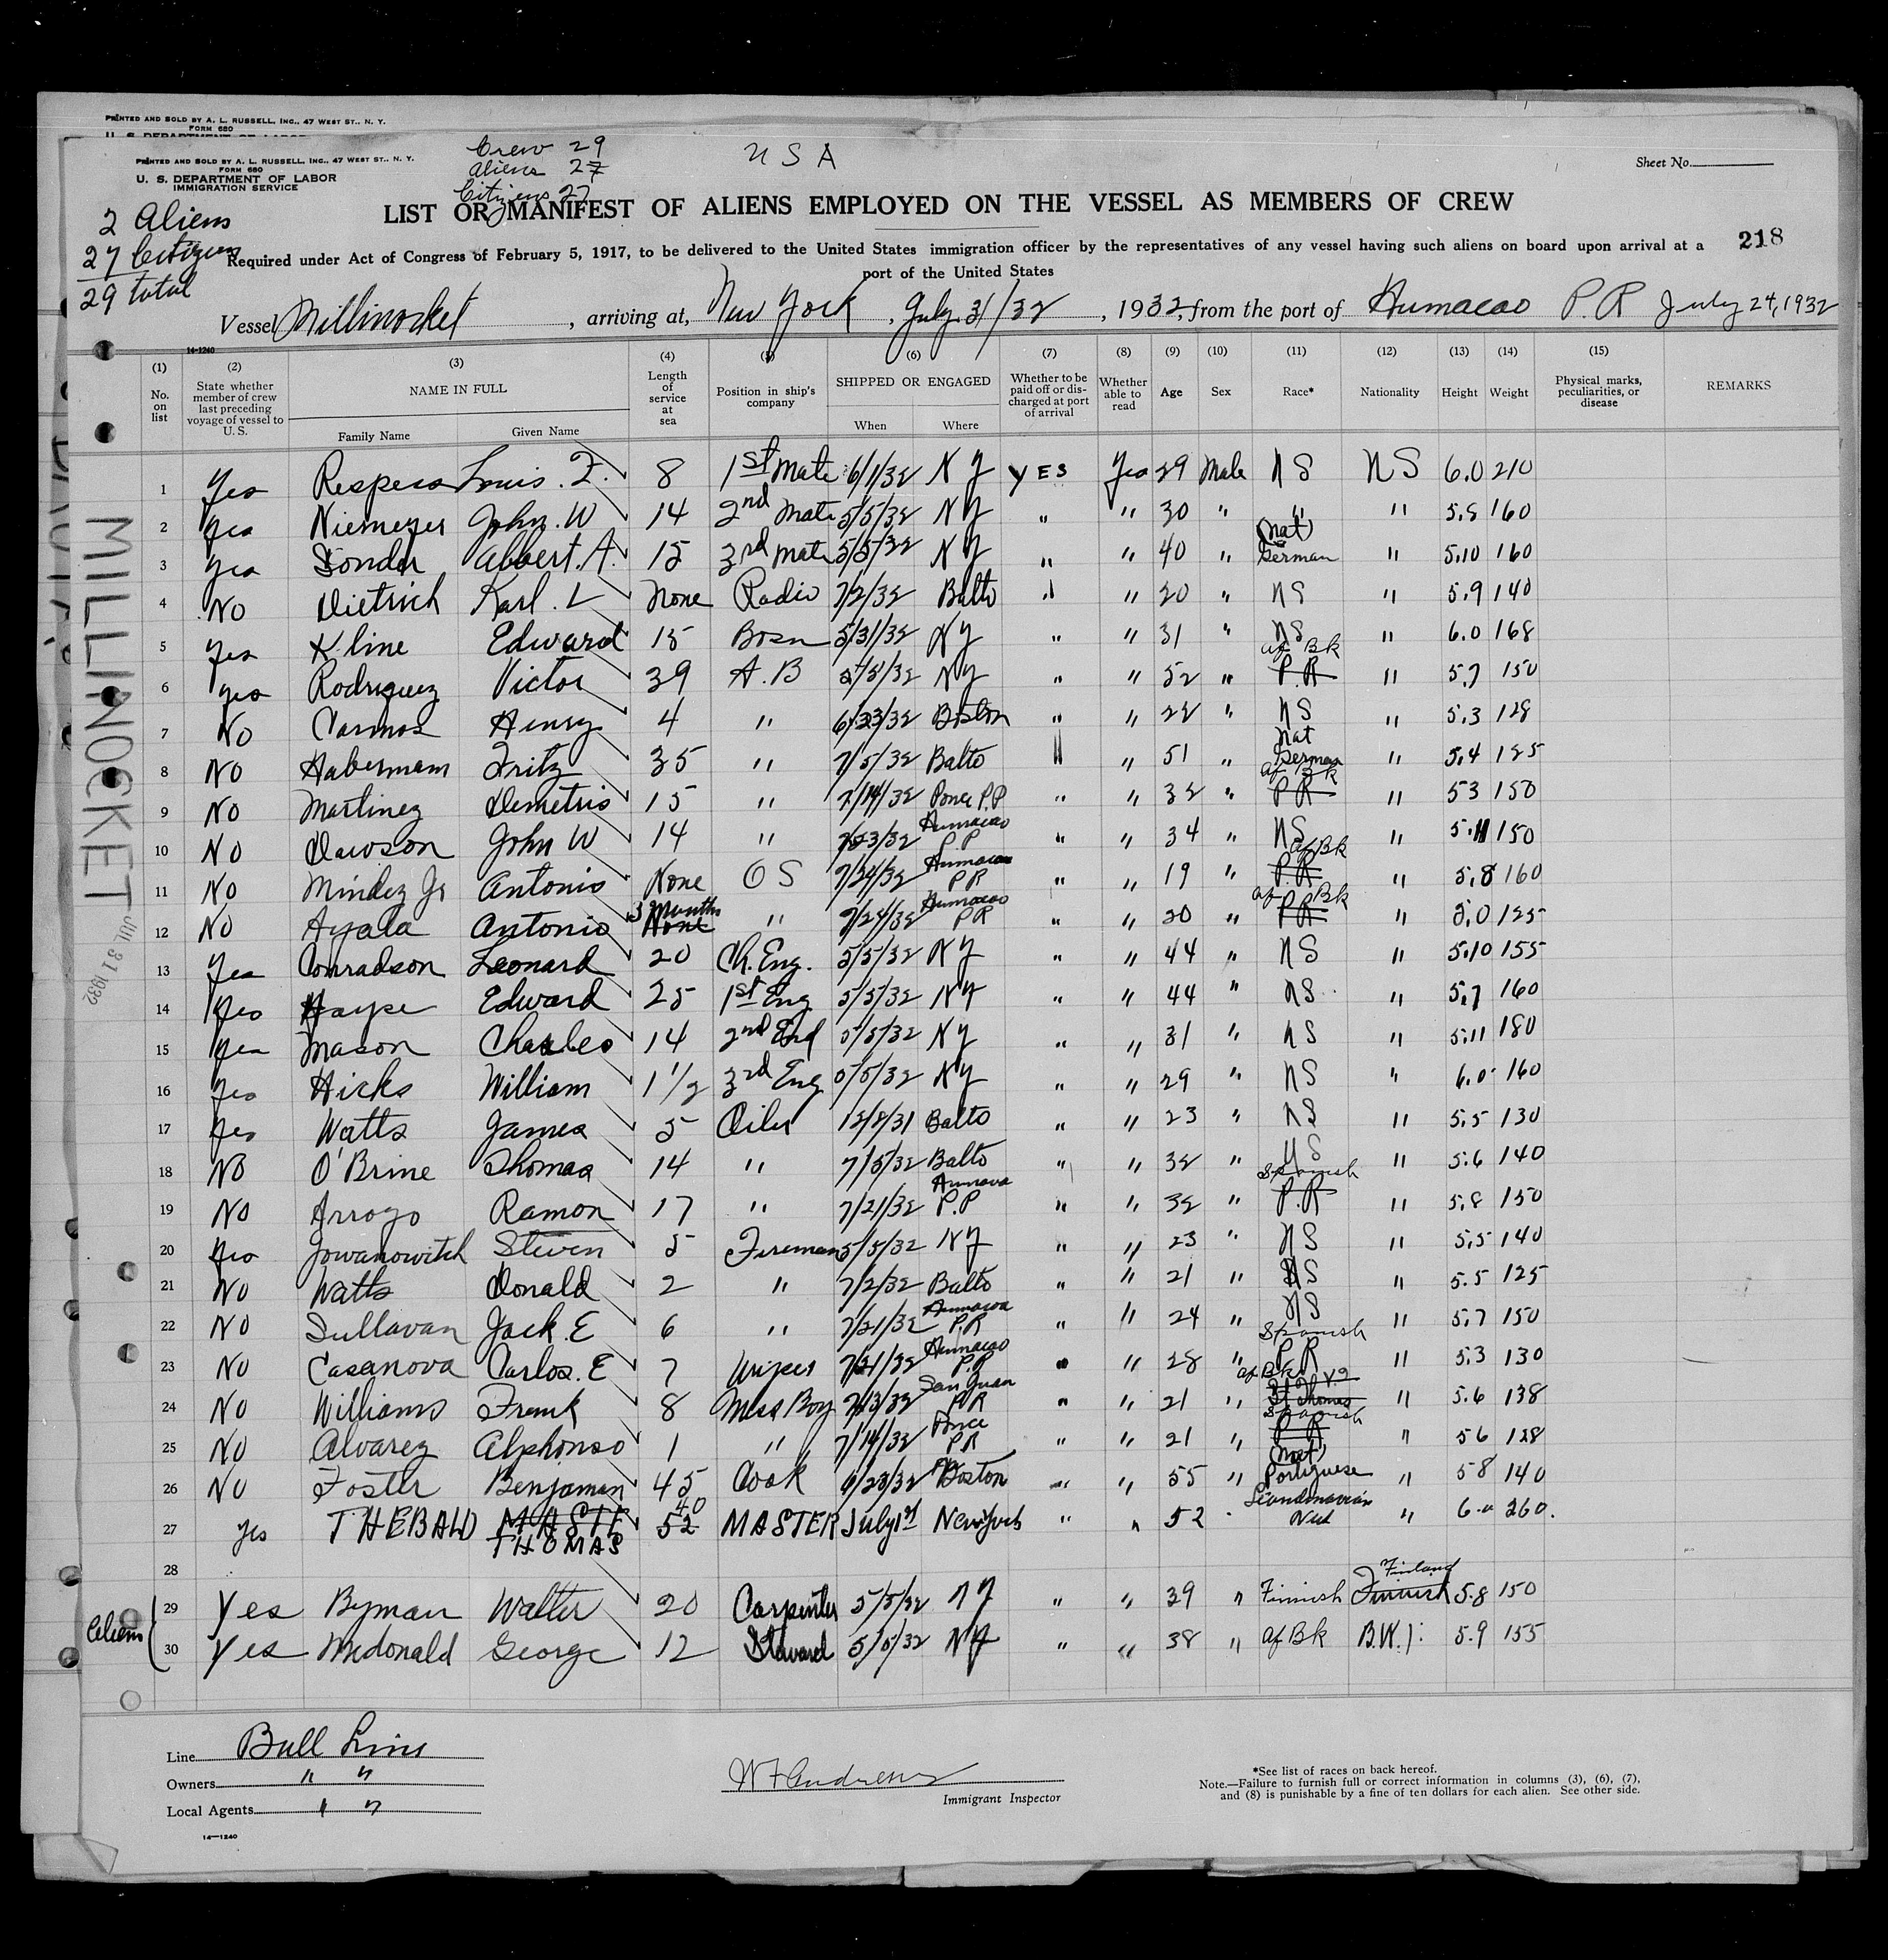 PRINTED AND SOLD BY A. L. RUSSELL, INC., 47 WEST ST., N. Y.
FORM 680
U. S. DEPARTMENT OF LABOR
PRINTED AND SOLD BY A. L. RUSSELL, INC., 47 WEST ST., N. Y.
FORM 680
U. S. DEPARTMENT OF LABOR
IMMIGRATION SERVICE
Crew 29
Aliens 27
Citizens 27
U S A
Sheet No.
2 Aliens
27 Citizens
29 total
LIST OR MANIFEST OF ALIENS EMPLOYED ON THE VESSEL AS MEMBERS OF CREW
218
Required under Act of Congress of February 5, 1917, to be delivered to the United States immigration officer by the representatives of any vessel having such aliens on board upon arrival at a
port of the United States
Vessel Millinocket, arriving at, New York, July 31/32, 1932, from the port of Humacao P. R July 24, 1932
14-1240
(1) (2) (3) (4) (5) (6) (7) (8) (9) (10) (11) (12) (13) (14) (15)
No. on list
State whether member of crew last preceding voyage of vessel to U. S.
NAME IN FULL
Family Name
Given Name
Length of service at sea
Position in ship's company
SHIPPED OR ENGAGED
When
Where
Whether to be paid off or discharged at port of arrival
Whether able to read
Age
Sex
Race*
Nationality
Height
Weight
Physical marks, peculiarities, or disease
REMARKS
1 Yes Respess Louis. F. 8 1st Mate 6/1/32 N Y YES Yes 29 Male U S U S 6.0 210
2 Yes Niemeyer John. W 14 2nd Mate 5/5/32 N Y " " 30 " " " 5.8 160
3 Yes Sonder Albert. A. 15 3rd Mate 5/5/32 N Y " " 40 " (nat) German " 5.10 160
4 No Dietrich Karl. L None Radio 7/2/32 Balto " " 20 " U S " 5.9 140
5 Yes Kline Edward 15 Bosn 5/31/32 N Y " " 31 " U S " 6.0 168
6 Yes Rodriguez Victor 39 A. B 5/5/32 N Y " " 52 " af Bk P. R " 5.7 150
7 No Carmos Henry 4 " 6/23/32 Boston " " 22 " U S " 5.3 128
8 No Habermann Fritz 35 " 7/5/32 Balto " " 51 " Nat German " 5.4 125
9 No Martinez Demetris 15 " 7/14/32 Ponce P.R " " 32 " af Bk P R " 5 3 150
10 No Dawson John W 14 " 7/23/32 Humacao P. R " " 34 " U S " 5.11 150
11 No Mindez Jr Antonio None O S 7/24/32 Humacao P R " " 19 " af Bk P. R " 5.8 160
12 No Ayala Antonio 3 Months None " 7/24/32 Humacao P R " " 20 " af Bk P R " 5.0 125
13 Yes Conradson Leonard 20 Ch. Eng. 5/5/32 N Y " " 44 " U S " 5.10 155
14 Yes Hayse Edward 25 1st Eng 5/5/32 N Y " " 44 " U S " 5.7 160
15 Yes Mason Charles 14 2nd End 5/5/32 N Y " " 31 " U S " 5.11 180
16 Yes Hicks William 1 1/2 3rd Eng 5/5/32 N Y " " 29 " U S " 6.0 160
17 Yes Watts James 5 Oiler 12/8/31 Balto " " 23 " U S " 5.5 130
18 No O'Brine Thomas 14 " 7/5/32 Balto " " 32 " U S " 5.6 140
19 No Arroyo Ramon 17 " 7/21/32 P. R " " 32 " Spanish P. R " 5.8 150
20 Yes Jowanowitch Steven 5 Fireman 5/5/32 N Y " " 23 " U S " 5.5 140
21 No Watts Donald 2 " 7/2/32 Balto " " 21 " U S " 5.5 125
22 No Sullavan Jack. E 6 " 7/21/32 Humacoa P.R " " 24 " U S " 5.7 150
23 No Casanova Carlos. E 7 Wiper 7/21/32 Humacao P.R " " 28 " Spanish P R " 5.3 130
24 No Williams Frank 8 Mess Boy 7/13/32 San Juan P R " " 21 " af Bk St Thomas " 5.6 138
25 No Alvarez Alphonso 1 " 7/14/32 Ponce P R " " 21 " Spanish P R " 5 6 128
26 No Foster Benjamen 45 Cook 6/23/32 Boston " " 55 " (nat) Portuguese " 5 8 140
27 Yes THEBALD MASTE THOMAS 40 52 MASTER July 1st New York " " 52 Scandinavian Nat " 6.0 260.
28
Aliens
29 Yes Byman Walter 20 Carpenter 5/5/32 N Y " " 39 " Finnish Finland Finnish 5.8 150
30 Yes Mcdonald George 12 Steward 5/5/32 N Y " " 38 " af Bk B. W. I. 5.9 155
MILLINOCKET
JUL 31 1932
Line Bull Line
Owners " "
Local Agents " "
14—1240
W F Andrews
Immigrant Inspector
*See list of races on back hereof.
Note.—Failure to furnish full or correct information in columns (3), (6), (7),
and (8) is punishable by a fine of ten dollars for each alien. See other side.